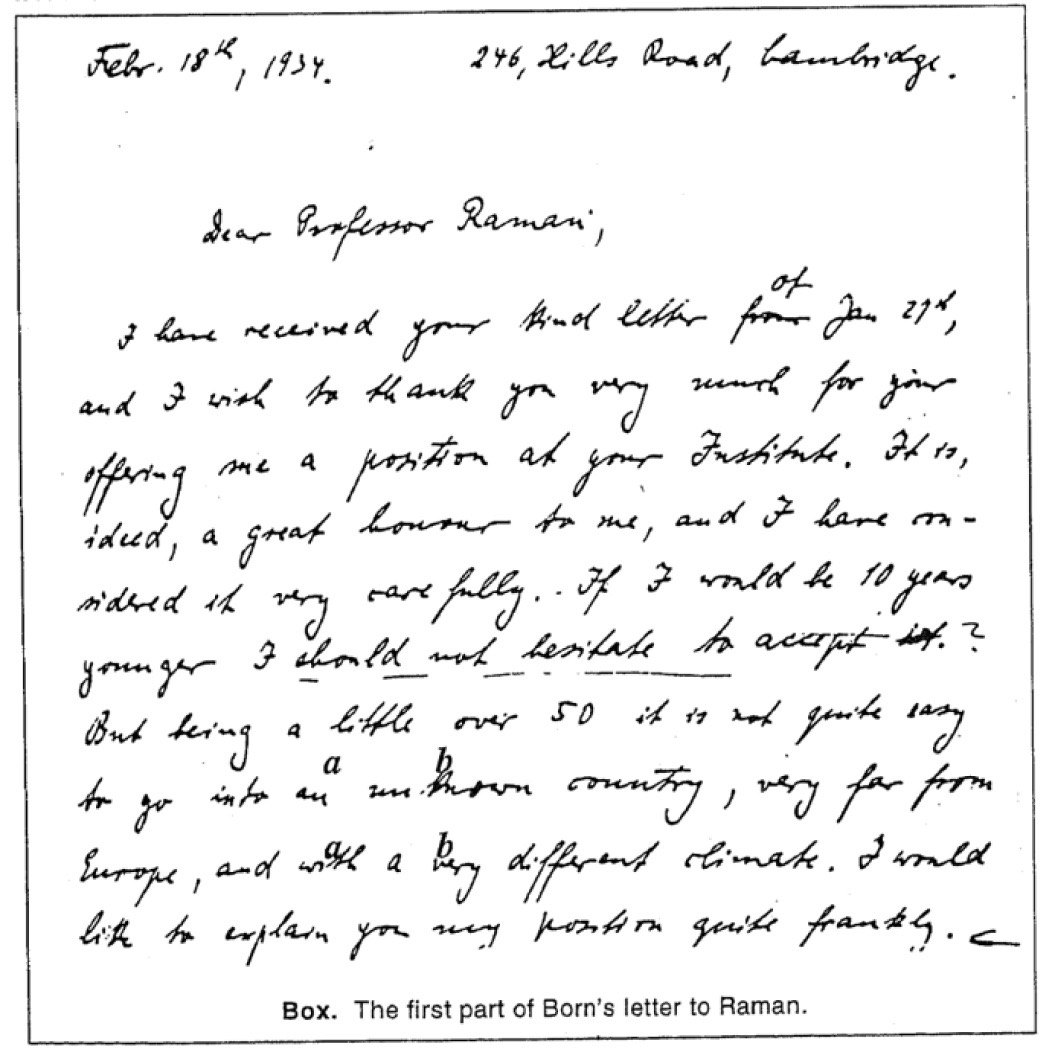 Febr. 18th, 1934. 246, Hills Road, Cambridge.
Dear Professor Raman,
of
I have received your kind letter from Jan 27th,
and I wish to thank you very much for your
offering me a position at your Institute. It is,
ideed, a great honour to me, and I have con-
sidered it very carefully.. If I would be 10 years
younger I should not hesitate to accept it.?
But being a little over 50 it is not quite easy
a b
to go into an unknown country, very far from
a b
Europe, and with a very different climate. I would
like to explain you my position quite frankly.
Box. The first part of Born's letter to Raman.